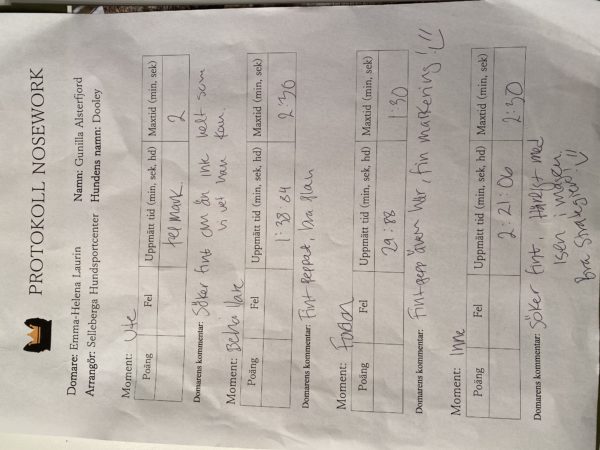 PROTOKOLL NOSEWORK
Domare: Emma-Helena Laurin Namn: Gunilla Alsterfjord
Arrangör: Selleberga Hundsportcenter Hundens namn: Dooley
Moment: Ute
Poäng Fel Uppmätt tid (min, sek, hd) Maxtid (min, sek)
Felmark 2
Domarens kommentar: Söker fint om än ink helt som
vi vet han kan.
Moment: Behållare
Poäng Fel Uppmätt tid (min, sek, hd) Maxtid (min, sek)
1:38:64 2:30
Domarens kommentar: Fint reppat, bra plan
Moment: Fordon
Poäng Fel Uppmätt tid (min, sek, hd) Maxtid (min, sek)
29:88 1:30
Domarens kommentar: Fint repp även här, fin markering!
Moment: Inne
Poäng Fel Uppmätt tid (min, sek, hd) Maxtid (min, sek)
2:21:06 2:30
Domarens kommentar: Söker fint. Härligt med
isen i magen
Bra strategier!